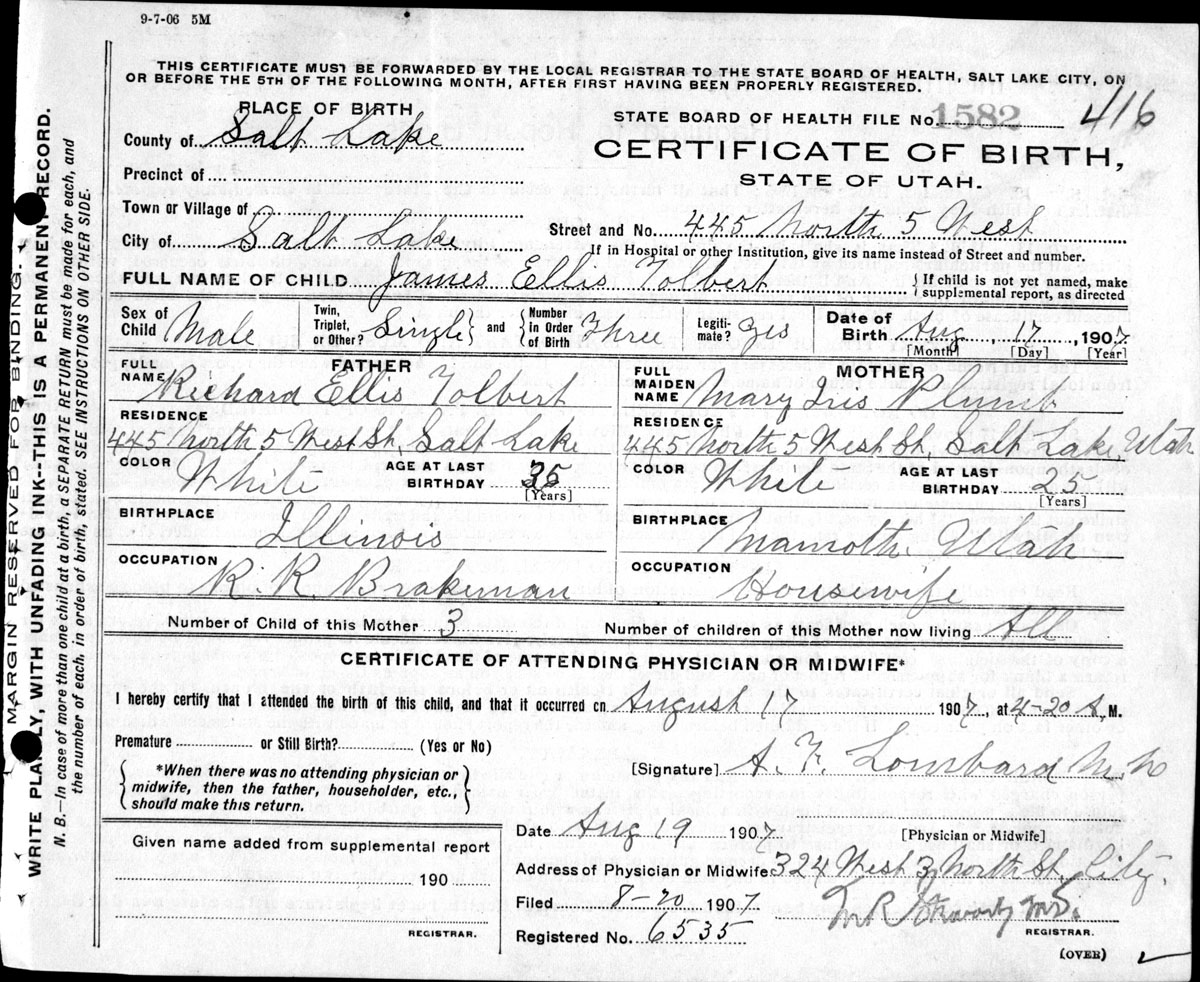 9-7-06 5M
THIS CERTIFICATE MUST BE FORWARDED BY THE LOCAL REGISTRAR TO THE STATE BOARD OF HEALTH, SALT LAKE CITY, ON
OR BEFORE THE 5TH OF THE FOLLOWING MONTH, AFTER FIRST HAVING BEEN PROPERLY REGISTERED.
PLACE OF BIRTH
STATE BOARD OF HEALTH FILE No. 1582 416
County of Salt Lake
CERTIFICATE OF BIRTH,
STATE OF UTAH.
Precinct of
Town or Village of
Street and No. 445 North 5 West
City of Salt Lake
If in Hospital or other Institution, give its name instead of Street and number.
FULL NAME OF CHILD James Ellis Tolbert
If child is not yet named, make
supplemental report, as directed
Sex of Child Male
Twin, Triplet, or Other? Single and Number in Order of Birth Three
Legiti-mate? Yes
Date of Birth Aug, 17, 1907
[Month] [Day] [Year]
FATHER
FULL NAME Richard Ellis Tolbert
RESIDENCE
445 North 5 West St, Salt Lake
COLOR White AGE AT LAST BIRTHDAY 35
[Years]
BIRTHPLACE Illinois
OCCUPATION R. R. Brakeman
MOTHER
FULL MAIDEN NAME Mary Iris Plumb
RESIDENCE
445 North 5 West St, Salt Lake, Utah
COLOR White AGE AT LAST BIRTHDAY 25
[Years]
BIRTHPLACE Mamoth, Utah
OCCUPATION Housewife
Number of Child of this Mother 3 Number of children of this Mother now living All
CERTIFICATE OF ATTENDING PHYSICIAN OR MIDWIFE*
I hereby certify that I attended the birth of this child, and that it occurred on August 17 1907, at 4-20 A. M.
Premature or Still Birth? (Yes or No)
*When there was no attending physician or
midwife, then the father, householder, etc.,
should make this return.
[Signature] A. F. Lombard M.D.
[Physician or Midwife]
Given name added from supplemental report
190
REGISTRAR.
Date Aug 19 1907
Address of Physician or Midwife 324 West 3 North St. City.
Filed 8-20 1907
Registered No. 6535
REGISTRAR.
(OVER)
MARGIN RESERVED FOR BINDING.
WRITE PLAINLY, WITH UNFADING INK--THIS IS A PERMANENT RECORD.
N. B.—In case of more than one child at a birth, a SEPARATE RETURN must be made for each, and
the number of each, in order of birth, stated. SEE INSTRUCTIONS ON OTHER SIDE.